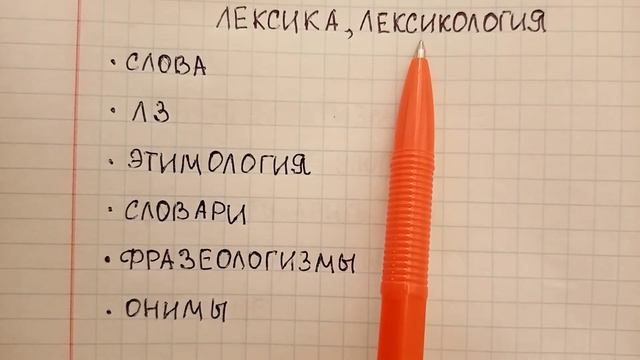 ЛЕКСИКА, ЛЕКСИКОЛОГИЯ
• СЛОВА
• ЛЗ
• ЭТИМОЛОГИЯ
• СЛОВАРИ
• ФРАЗЕОЛОГИЗМЫ
• ОНИМЫ